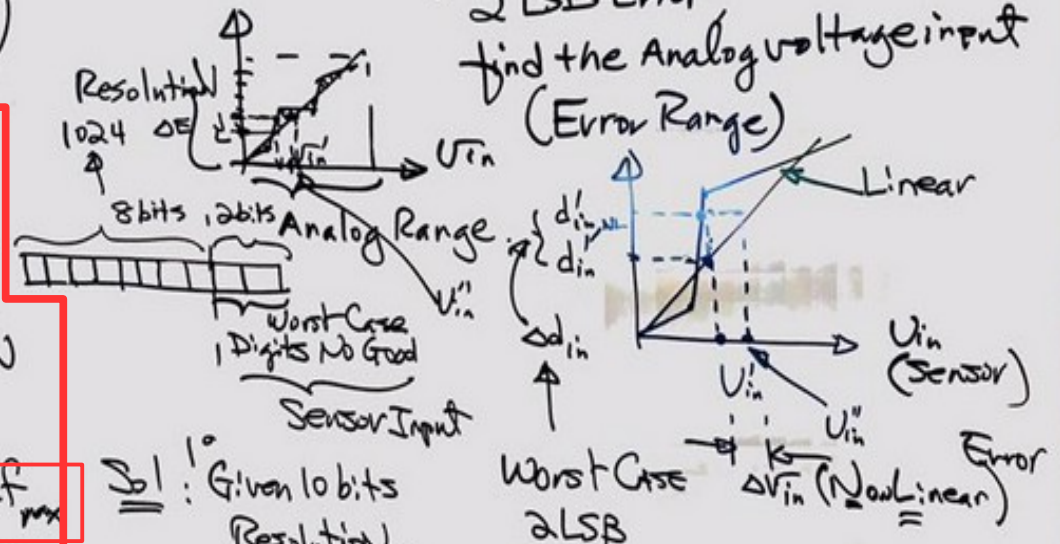 2 LSB Error
find the Analog voltage input
(Error Range)
Resolution
1024 ΔE
Vin
V'in
8bits, 2bits
Analog Range
V''in
Worst Case
Digits No Good
Sensor Input
Linear
d'in,NL
d'in
Δdin
Vin
(Sensor)
V'in
V''in
Error
ΔVin (NonLinear)
Worst Case
2LSB
fmax
Sol: 1° Given 10 bits
Resolution